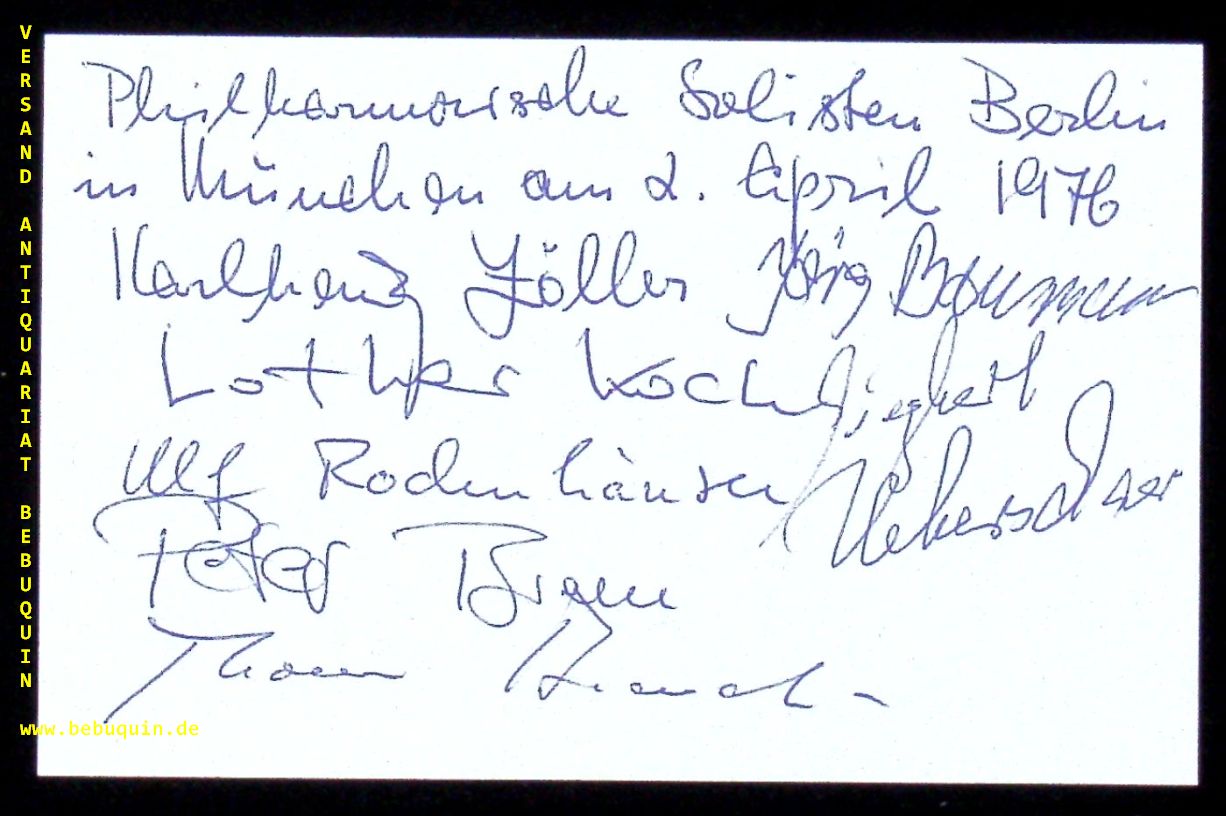 Philharmonische Solisten Berlin
in München am 2. April 1976
Karlheinz Zöller Jörg Baumann
Lothar Koch Siegbert
Ueberschaer
Ulf Rodenhäuser
Peter Braun
Thomas
VERSAND ANTIQUARIAT BEBUQUIN
www.bebuquin.de